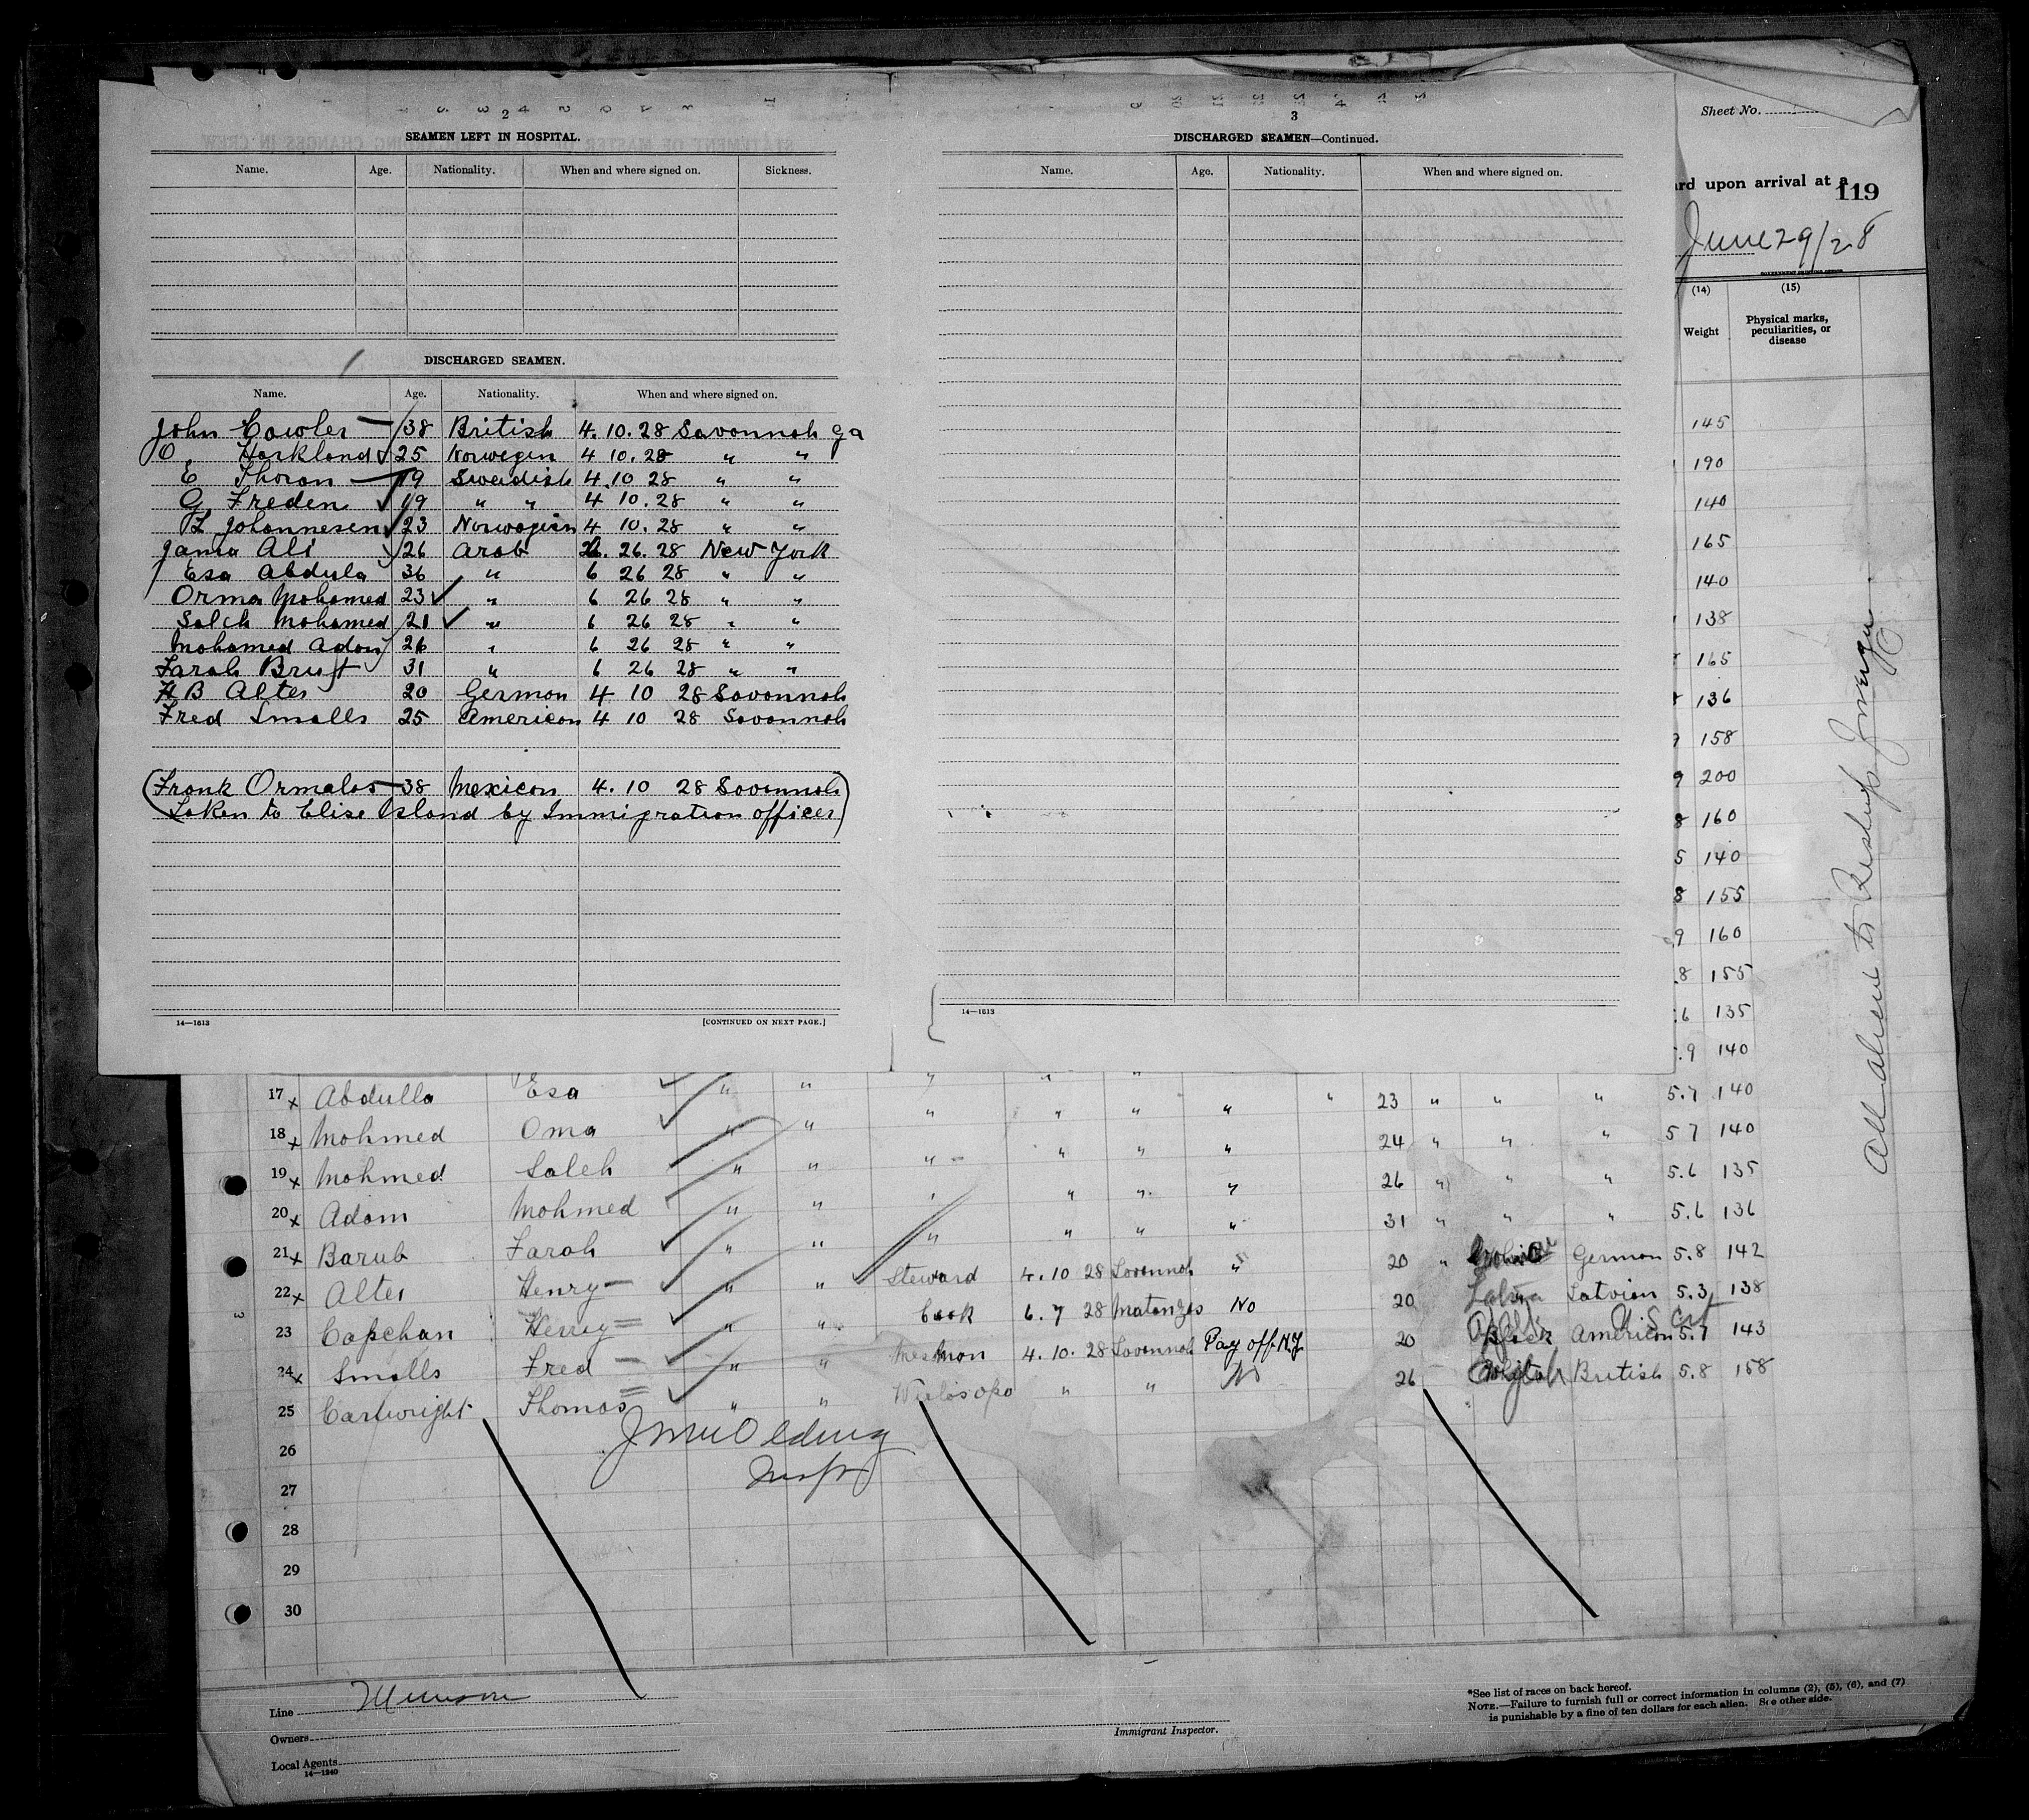 2
SEAMEN LEFT IN HOSPITAL.
Name. Age. Nationality. When and where signed on. Sickness.
DISCHARGED SEAMEN.
Name. Age. Nationality. When and where signed on.
John Cowler 38 British 4. 10. 28 Savannah Ga
O Harkland 25 Norwegin 4 10. 28 " "
E Thoran 19 Swedish 4. 10 28 " "
G Freden 19 " " 4 10. 28 " "
Johannesen 23 Norwegian 4 10. 28 " "
Jama Ali 26 Arab 26. 28 New York
Esa Abdula 36 " 6 26 28 " "
Orma Mohamed 23 " 6 26 28 " "
Saleh Mohamed 21 " 6 26 28 " "
Mohamed Adon 26 " 6 26 28 " "
Farah Brust 31 " 6 26 28 " "
H B Altes 20 German 4 10 28 Savannah
Fred Smalls 25 American 4 10 28 Savannah
Frank Ormalos 38 Mexican 4. 10 28 Savannah
Taken to Elise Island by Immigration officer
14—1613 [CONTINUED ON NEXT PAGE.]
3
DISCHARGED SEAMEN—Continued.
Name. Age. Nationality. When and where signed on.
14—1613
Sheet No.
rd upon arrival at a
119
June 29/28
GOVERNMENT PRINTING OFFICE
(14) (15)
Weight Physical marks, peculiarities, or disease
145
190
140
165
140
138
165
136
158
9 200
8 160
5 140
8 155
9 160
.8 155
:6 135
.9 140
All aliens to Reship Foreign
17 x Abdulla Esa " " " " " " " 23 " " " 5.7 140
18 x Mohmed Oma " " " " " " 24 " " " 5 7 140
19 x Mohmed Saleh " " " " " " 26 " " " 5.6 135
20 x Adam Mohmed " " " " " " 31 " " " 5.6 136
21 x Barub Farah " " " " " " 20 " German 5.8 142
22 x Altes Henry " " Steward 4. 10 28 Savannah " 20 Latvian 5.3 138
23 Capchan Henry " " Cook 6. 7 28 Matanzas No 20 Black American 5.7 143
U S Cit
24 x Smalls Fred " " Mesman 4. 10. 28 Savannah Pay off N.Y 26 British 5.8 158
25 Cartwright Thomas " " " " No
26
27
28
29
30
Insp
Line Munson
Owners
Local Agents
14—1240
Immigrant Inspector.
*See list of races on back hereof.
NOTE.—Failure to furnish full or correct information in columns (2), (5), (6), and (7)
is punishable by a fine of ten dollars for each alien. See other side.